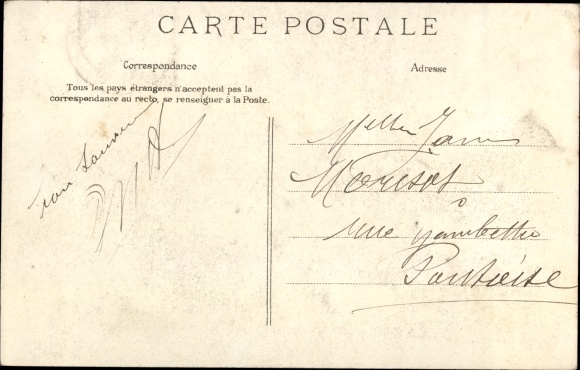 CARTE POSTALE
Correspondance
Adresse
Tous les pays étrangers n'acceptent pas la
correspondance au recto, se renseigner à la Poste.
Melle
Morisot
rue Gambetta
Pontoise